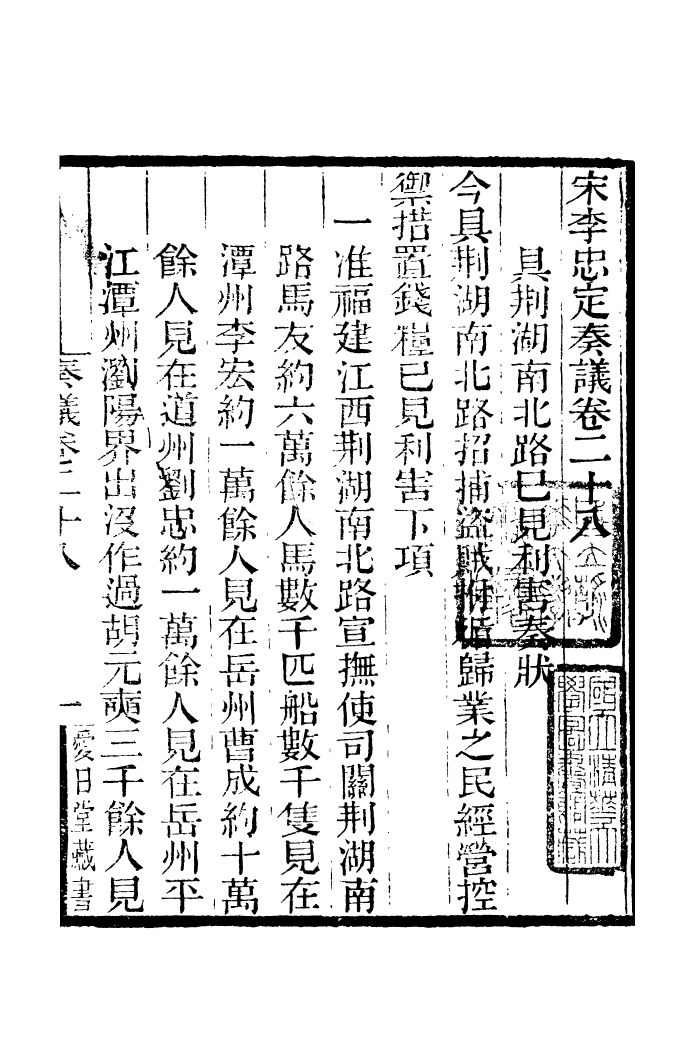 宋李忠定奏議卷二十八
具荆湖南北路已見利害奏狀
今具荆湖南北路招捕盜賊拊循歸業之民經營控
禦措置錢糧已見利害下項
一准福建江西荆湖南北路宣撫使司關荆湖南
路馬友約六萬餘人馬數千匹船數千隻見在
潭州李宏約一萬餘人見在岳州曹成約十萬
餘人見在道州劉忠約一萬餘人見在岳州平
江潭州瀏陽界出沒作過胡元奭三千餘人見
奏議卷二十八 一 愛日堂藏書